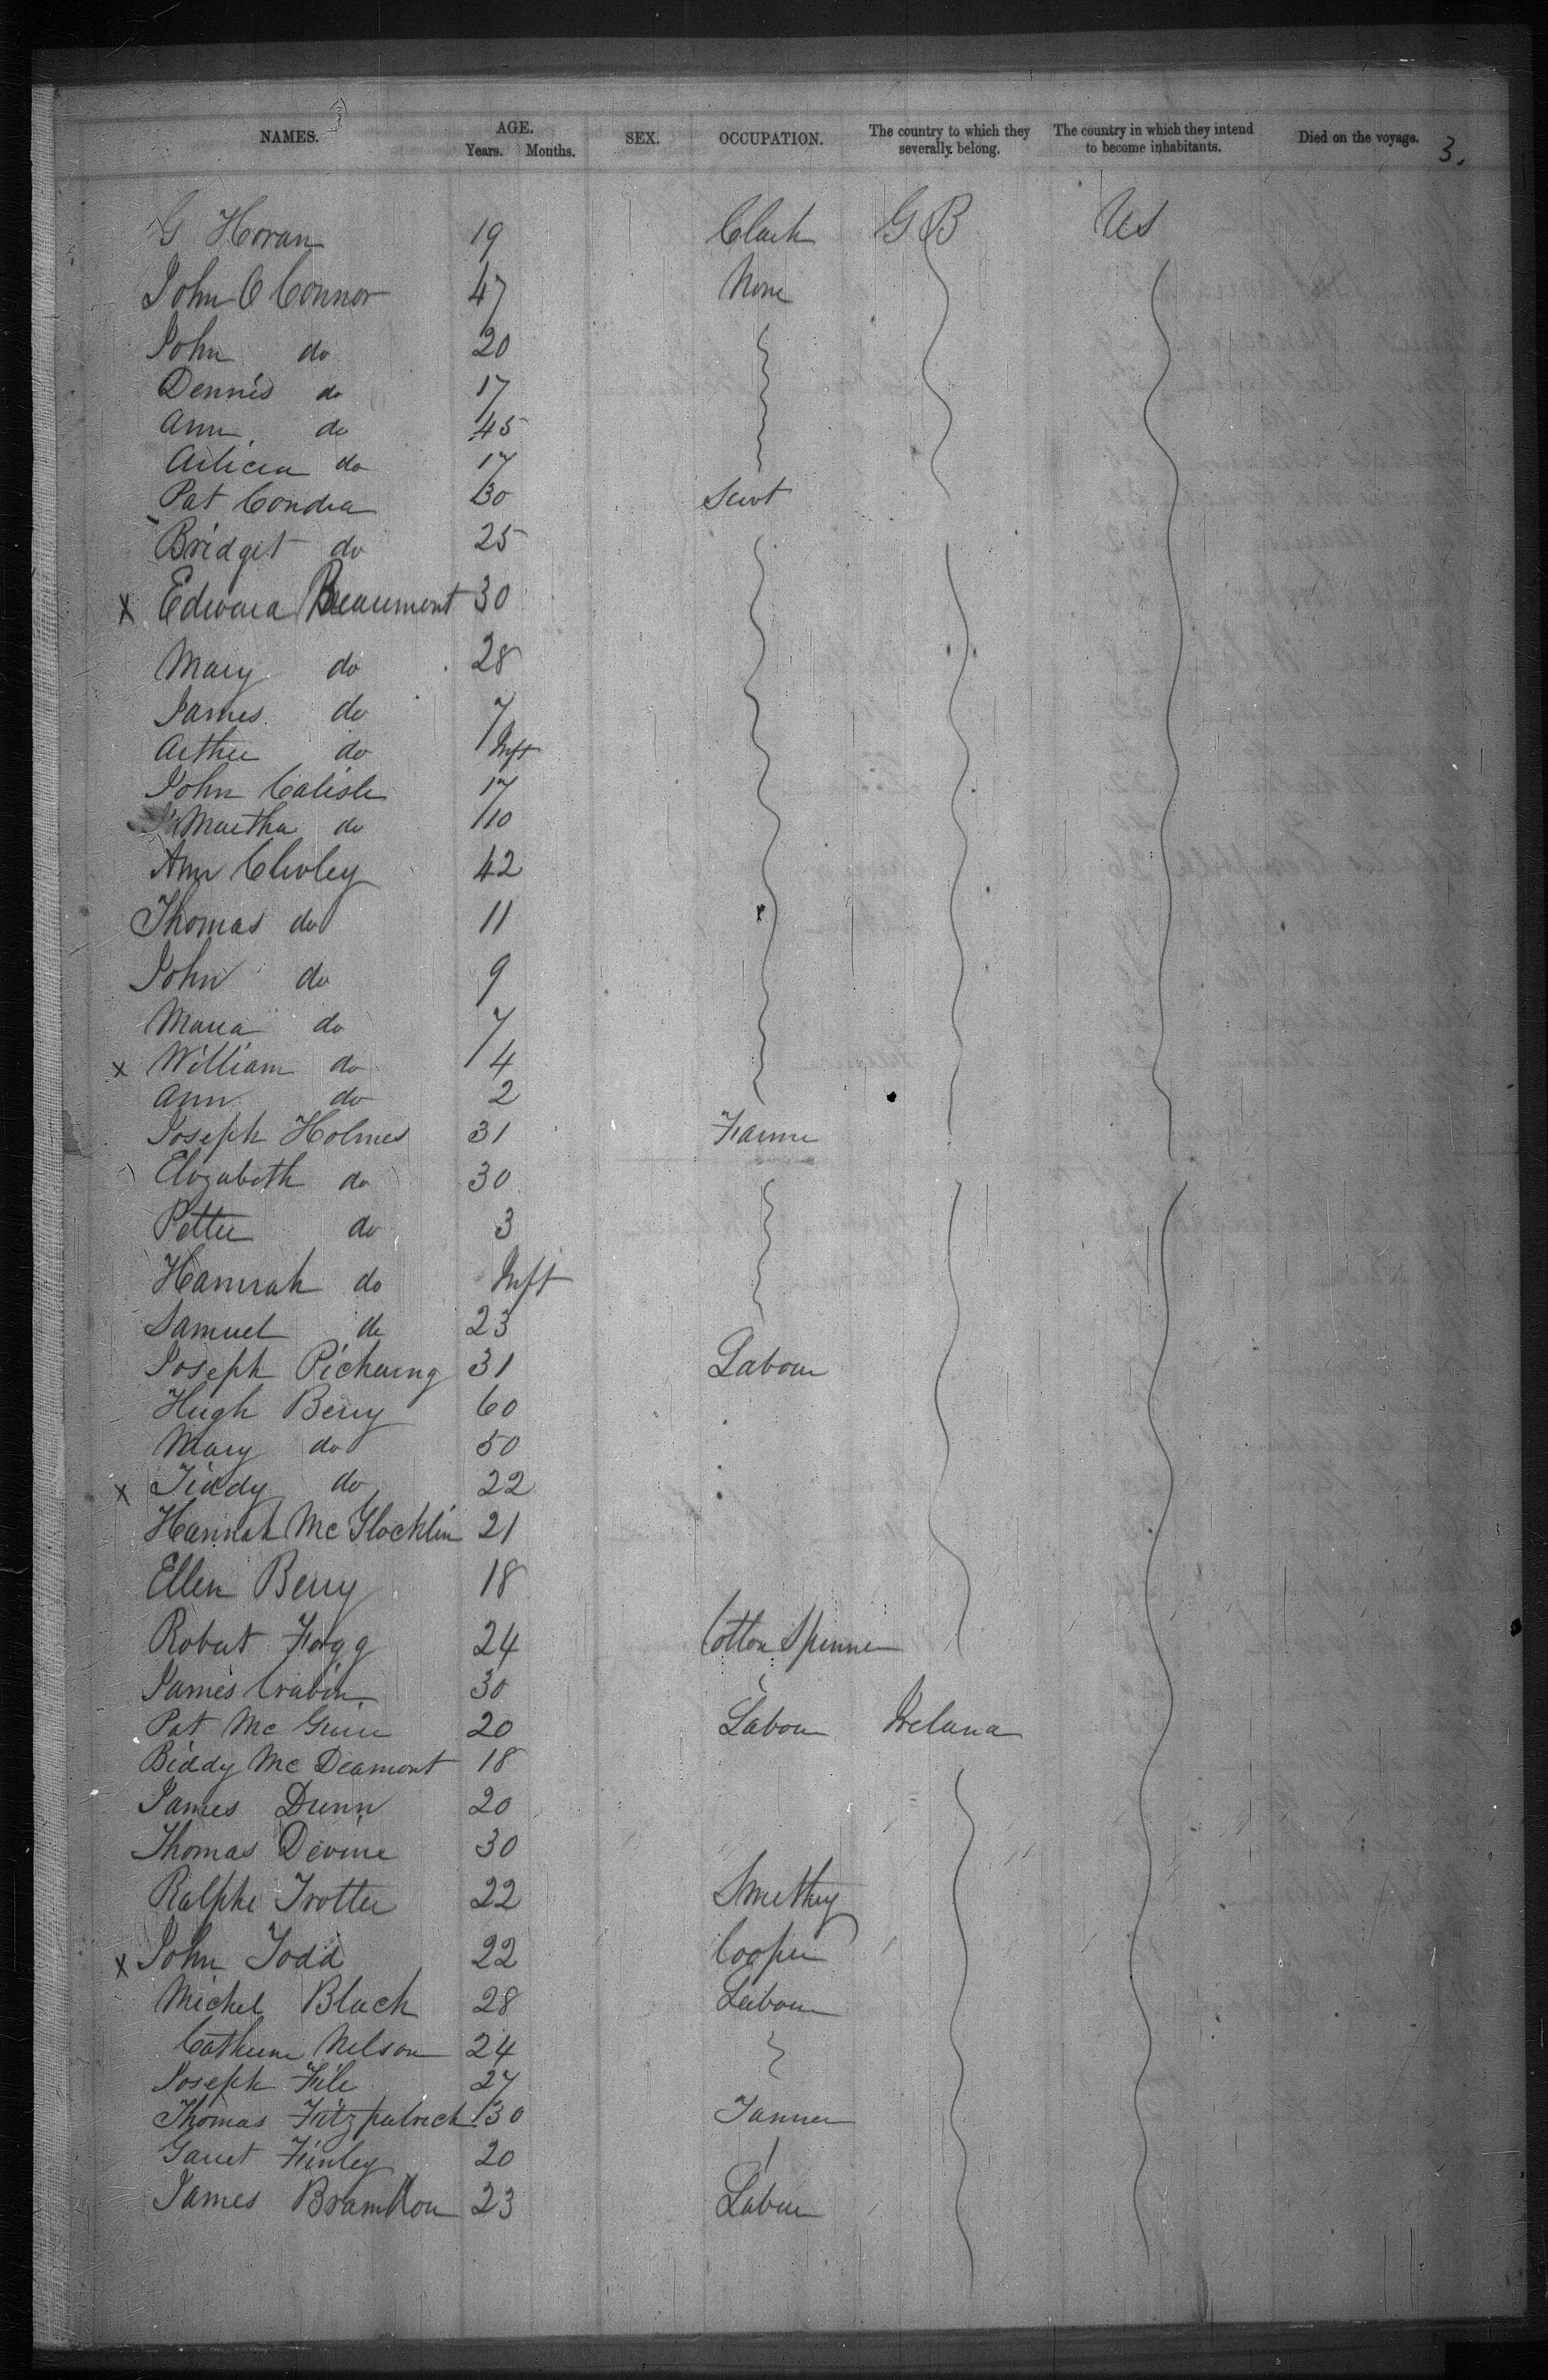 NAMES. AGE. SEX. OCCUPATION. The country to which they severally belong. The country in which they intend to become inhabitants. Died on the voyage. 3.
Years. Months.
G Horan 19 Clark G B US
John O Connor 47 None
John do 20
Dennis do 17
Ann do 45
Ailicia do 17
Pat Condra 30 Servt
Bridget do 25
x Edward Beaumont 30
Mary do 28
James do 7
Arthur do Inft
John Calisle 17
Martha do 10
Ann Clivley 42
Thomas do 11
John do 9
Maria do 7
x William do 4
Ann do 2
Joseph Holmes 31 Farmer
Elizabeth do 30
Petter do 3
Hannah do Inft
Samuel do 23
Joseph Pickering 31 Labour
Hugh Berry 60
Mary do 50
x Teddy do 22
Hannah Mc Glocklin 21
Ellen Berry 18
Robert Fogg 24 Cotton Spinner
James Crabin 30
Pat Mc Guire 20 Labour Ireland
Biddy Mc Deamont 18
James Dunn 20
Thomas Devine 30
Ralphe Trotter 22
x John Todd 22 Cooper
Michel Black 28 Labour
Catherine Nelson 24
Joseph File 27
Thomas Fitzpatrick 30 Tanner
Garret Finley 20
James 23 Labour